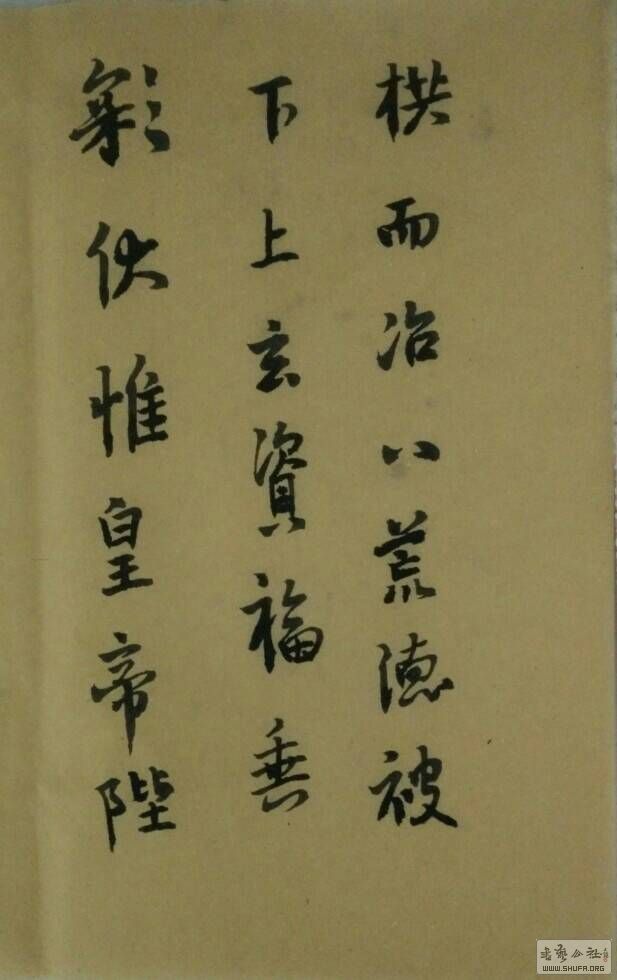 彩伏惟皇帝陛
下上玄資福垂
拱而治八荒德被
書藝公社
WWW.SHUFA.ORG